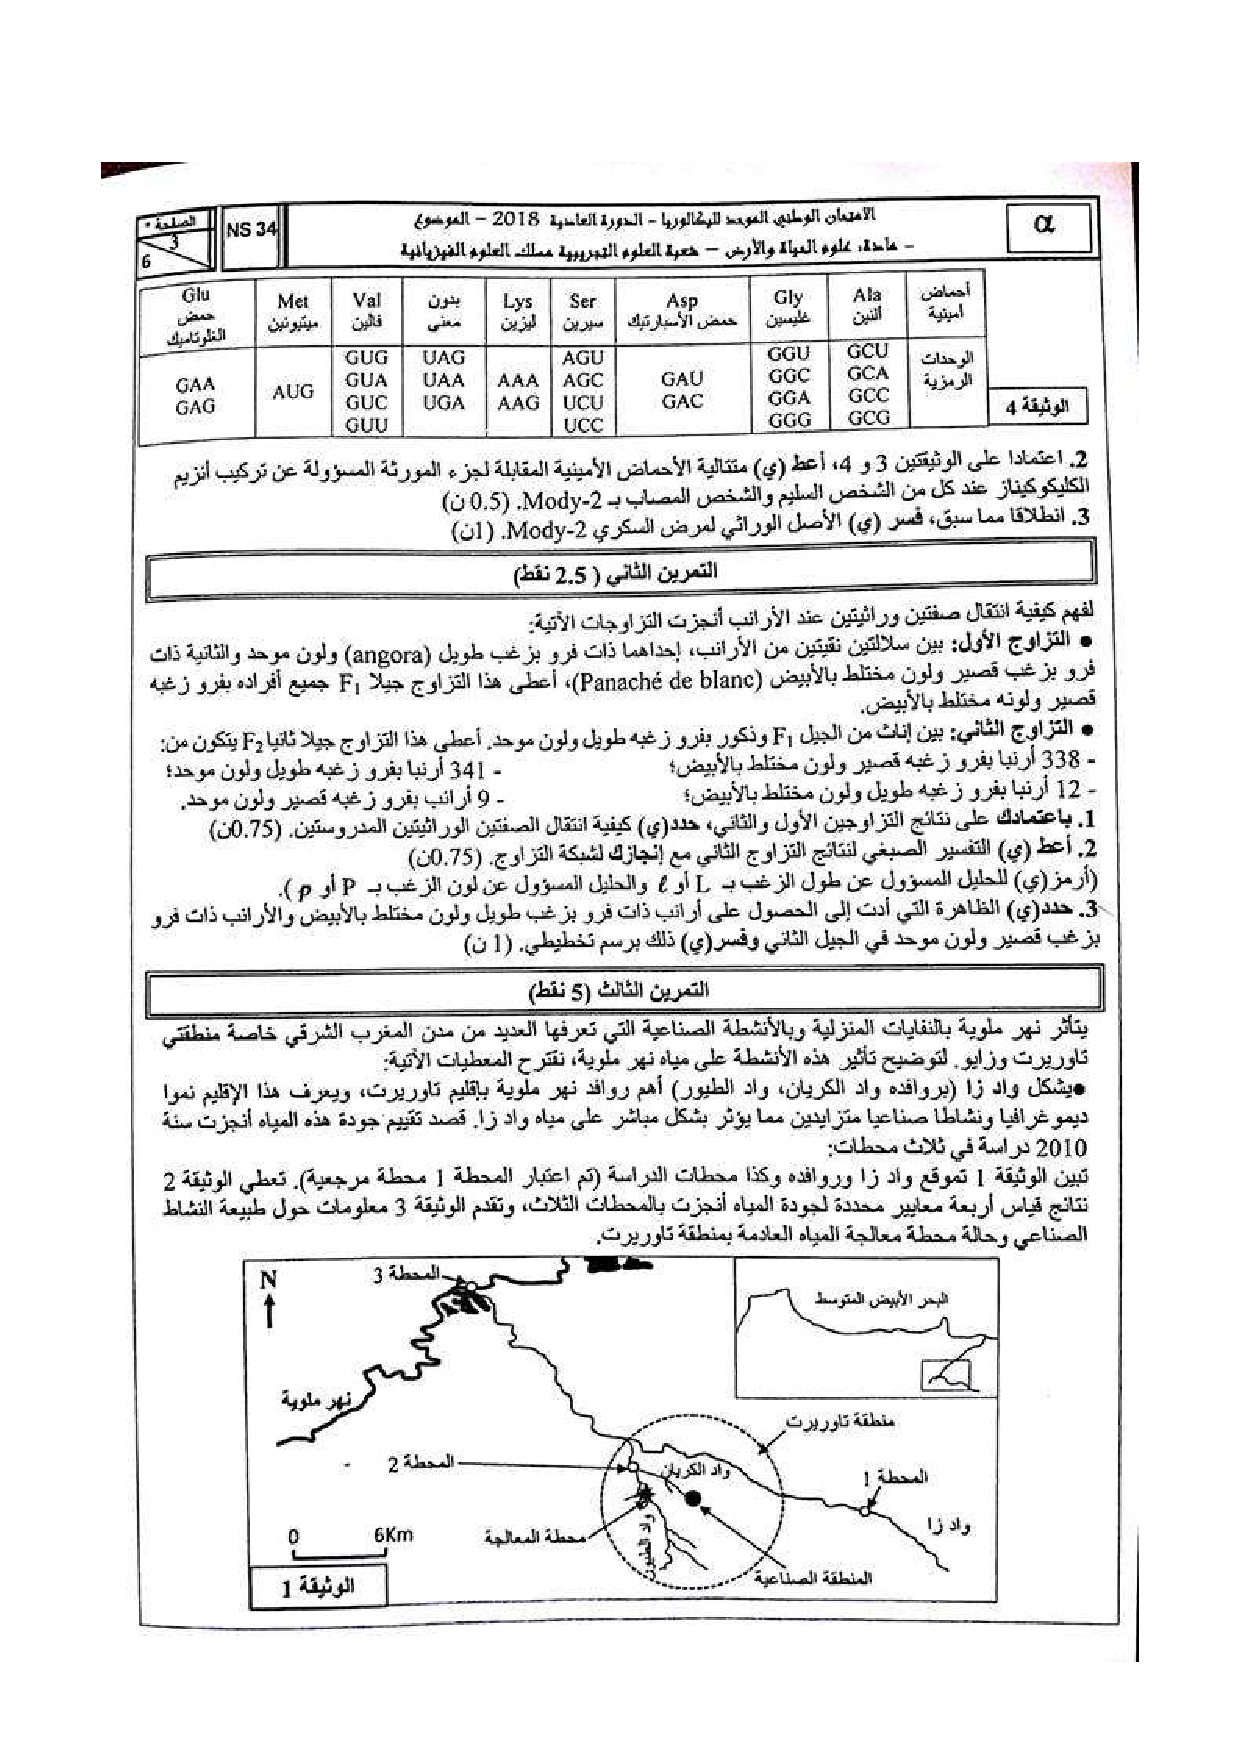 الصفحة
3
6
NS 34
الامتحان الوطني الموحد للبكالوريا - الدورة العادية 2018 - الموضوع
- مادة: علوم الحياة والأرض - شعبة العلوم التجريبية مسلك العلوم الفيزيائية
α
أحماض أمينية | Ala ألنين | Gly غليسين | Asp حمض الأسبارتيك | Ser سيرين | Lys ليزين | بدون معنى | Val فالين | Met ميثيونين | Glu حمض الغلوتاميك
الوحدات الرمزية | GCU GCA GCC GCG | GGU GGC GGA GGG | GAU GAC | AGU AGC UCU UCC | AAA AAG | UAG UAA UGA | GUG GUA GUC GUU | AUG | GAA GAG
الوثيقة 4
2. اعتمادا على الوثيقتين 3 و 4، أعط (ي) متتالية الأحماض الأمينية المقابلة لجزء المورثة المسؤولة عن تركيب أنزيم
الكليكوكيناز عند كل من الشخص السليم والشخص المصاب بـ Mody-2. (0.5 ن)
3. انطلاقا مما سبق، فسر (ي) الأصل الوراثي لمرض السكري Mody-2. (1ن)
التمرين الثاني ( 2.5 نقط)
لفهم كيفية انتقال صفتين وراثيتين عند الأرانب أنجزت التزاوجات الآتية:
● التزاوج الأول: بين سلالتين نقيتين من الأرانب، إحداهما ذات فرو بزغب طويل (angora) ولون موحد والثانية ذات
فرو بزغب قصير ولون مختلط بالأبيض (Panaché de blanc)، أعطى هذا التزاوج جيلا F1 جميع أفراده بفرو زغبه
قصير ولونه مختلط بالأبيض.
● التزاوج الثاني: بين إناث من الجيل F1 وذكور بفرو زغبه طويل ولون موحد. أعطى هذا التزاوج جيلا ثانيا F2 يتكون من:
- 338 أرنبا بفرو زغبه قصير ولون مختلط بالأبيض؛ - 341 أرنبا بفرو زغبه طويل ولون موحد؛
- 12 أرنبا بفرو زغبه طويل ولون مختلط بالأبيض؛ - 9 أرانب بفرو زغبه قصير ولون موحد.
1. باعتمادك على نتائج التزاوجين الأول والثاني، حدد(ي) كيفية انتقال الصفتين الوراثيتين المدروستين. (0.75ن)
2. أعط (ي) التفسير الصبغي لنتائج التزاوج الثاني مع إنجازك لشبكة التزاوج. (0.75ن)
(أرمز(ي) للحليل المسؤول عن طول الزغب بـ L أو ℓ والحليل المسؤول عن لون الزغب بـ P أو p ).
3. حدد(ي) الظاهرة التي أدت إلى الحصول على أرانب ذات فرو بزغب طويل ولون مختلط بالأبيض والأرانب ذات فرو
بزغب قصير ولون موحد في الجيل الثاني وفسر(ي) ذلك برسم تخطيطي. (1 ن)
التمرين الثالث (5 نقط)
يتأثر نهر ملوية بالنفايات المنزلية وبالأنشطة الصناعية التي تعرفها العديد من مدن المغرب الشرقي خاصة منطقتي
تاوريرت وزايو. لتوضيح تأثير هذه الأنشطة على مياه نهر ملوية، نقترح المعطيات الآتية:
●يشكل واد زا (بروافده واد الكريان، واد الطيور) أهم روافد نهر ملوية بإقليم تاوريرت، ويعرف هذا الإقليم نموا
ديموغرافيا ونشاطا صناعيا متزايدين مما يؤثر بشكل مباشر على مياه واد زا. قصد تقييم جودة هذه المياه أنجزت سنة
2010 دراسة في ثلاث محطات:
تبين الوثيقة 1 تموقع واد زا وروافده وكذا محطات الدراسة (تم اعتبار المحطة 1 محطة مرجعية). تعطي الوثيقة 2
نتائج قياس أربعة معايير محددة لجودة المياه أنجزت بالمحطات الثلاث، وتقدم الوثيقة 3 معلومات حول طبيعة النشاط
الصناعي وحالة محطة معالجة المياه العادمة بمنطقة تاوريرت.
N
المحطة 3
البحر الأبيض المتوسط
نهر ملوية
منطقة تاوريرت
المحطة 2
واد الكريان
المحطة 1
واد زا
0 6Km
محطة المعالجة
واد الطيور
المنطقة الصناعية
الوثيقة 1